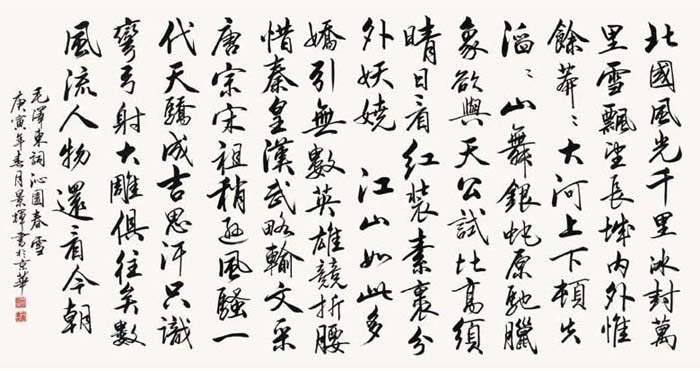 北國風光千里冰封萬
里雪飄望長城內外惟
餘莽〻大河上下頓失
滔〻山舞銀蛇原馳臘
象欲與天公試比高須
晴日看紅裝素裹分
外妖嬈 江山如此多
嬌引無數英雄競折腰
惜秦皇漢武略輸文采
唐宗宋祖稍遜風騷一
代天驕成吉思汗只識
彎弓射大雕俱往矣數
風流人物還看今朝
毛澤東詞沁園春雪
庚寅年春月景輝書於京華